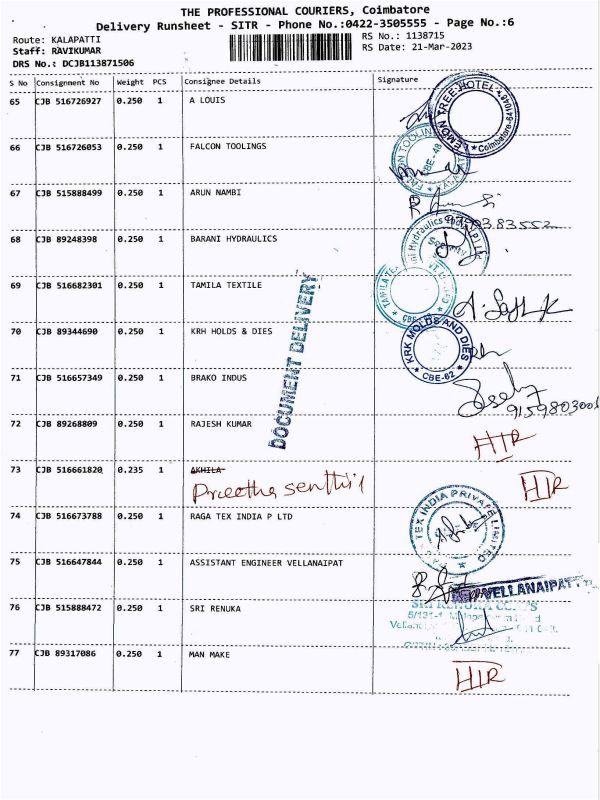 THE PROFESSIONAL COURIERS, Coimbatore
Delivery Runsheet - SITR - Phone No.:0422-3505555 - Page No.:6
Route: KALAPATTI
Staff: RAVIKUMAR
DRS No.: DCJB113871506
RS No.: 1138715
RS Date: 21-Mar-2023
S No Consignment No Weight PCS Consignee Details Signature
65 CJB 516726927 0.250 1 A LOUIS
LEMON TREE HOTEL Coimbatore-641048
66 CJB 516726053 0.250 1 FALCON TOOLINGS
TOOLIN CBE-48
67 CJB 515888499 0.250 1 ARUN NAMBI
68 CJB 89248398 0.250 1 BARANI HYDRAULICS
Hydraulics Security
69 CJB 516682301 0.250 1 TAMILA TEXTILE
70 CJB 89344690 0.250 1 KRH HOLDS & DIES
KRK MOLDS AND DIES CBE-62
71 CJB 516657349 0.250 1 BRAKO INDUS
9159803001
72 CJB 89268809 0.250 1 RAJESH KUMAR HTR
73 CJB 516661820 0.235 1 AKHILA
Preetha senthil HTR
74 CJB 516673788 0.250 1 RAGA TEX INDIA P LTD
TEX INDIA PRIVATE LIMITED
75 CJB 516647844 0.250 1 ASSISTANT ENGINEER VELLANAIPAT
VELLANAIPATT
76 CJB 515888472 0.250 1 SRI RENUKA
SRI RENUKA
77 CJB 89317086 0.250 1 MAN MAKE HTR
DOCUMENT DELIVERY